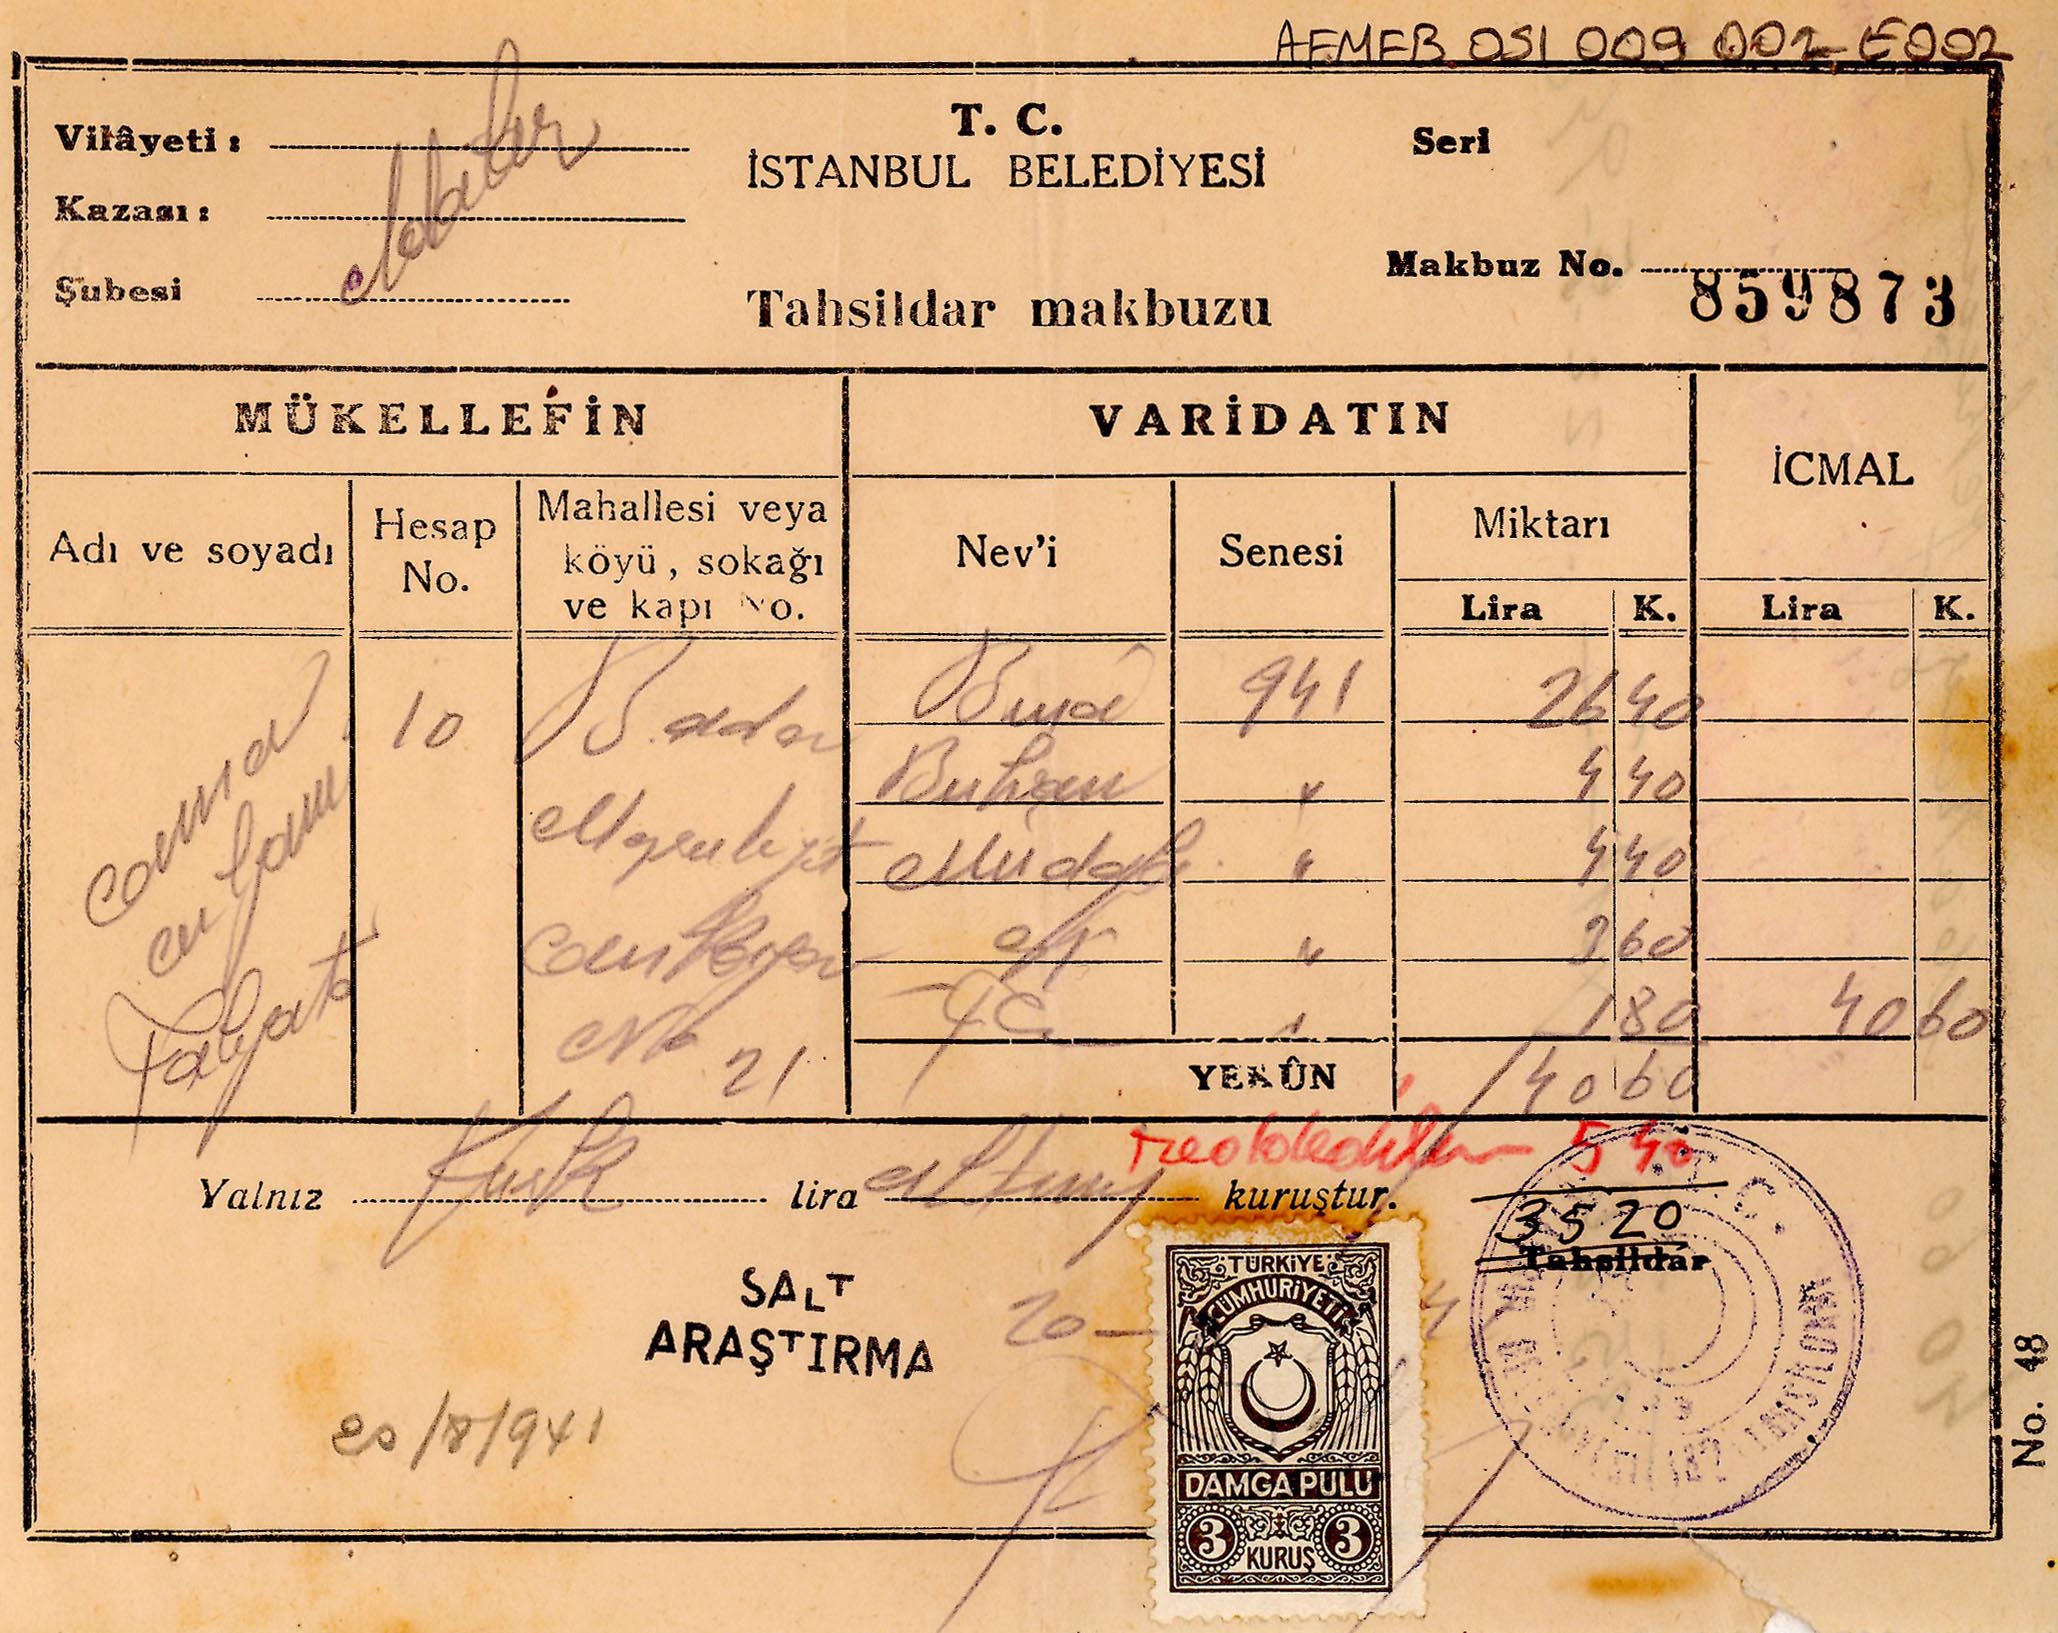 AFMFB OSI 009 002-E002
Vilâyeti :
Kazası :
Şubesi
Adalar
T. C.
İSTANBUL BELEDİYESİ
Tahsildar makbuzu
Seri
Makbuz No. 859873
MÜKELLEFİN
VARİDATIN
İCMAL
Adı ve soyadı
Hesap No.
Mahallesi veya köyü, sokağı ve kapı No.
Nev'i
Senesi
Miktarı
Lira K.
Lira K.
10
B. ada
No 21
Bina 941 26 40
Buhran " 4 40
Müdafa " 4 40
" 3 60
" 1 80 40 60
YEKÛN 40 60
5 40
Yalnız Kırk lira altmış kuruştur.
35 20
Tahsildar
SALT
ARAŞTIRMA
20/8/941
TÜRKİYE
CÜMHURİYETİ
DAMGA PULU
3 KURUŞ 3
T. C.
No. 48